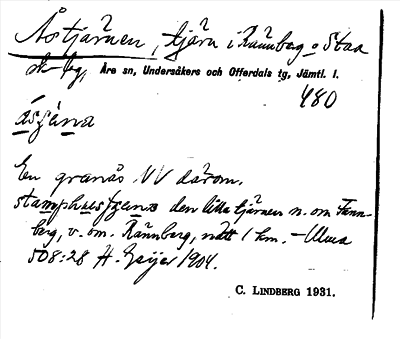 Åstjärnen, tjärn i Rännberg o Staa
sk-bg, Åre sn, Undersåkers och Offerdals tg, Jämtl. l.
480
En granås NV därom.
den lilla tjärnen n. om Fann-
berg, v. om Rännberg, mätt 1 km. – Ulma
508:28 H. Geijer 1904.
C. LINDBERG 1931.